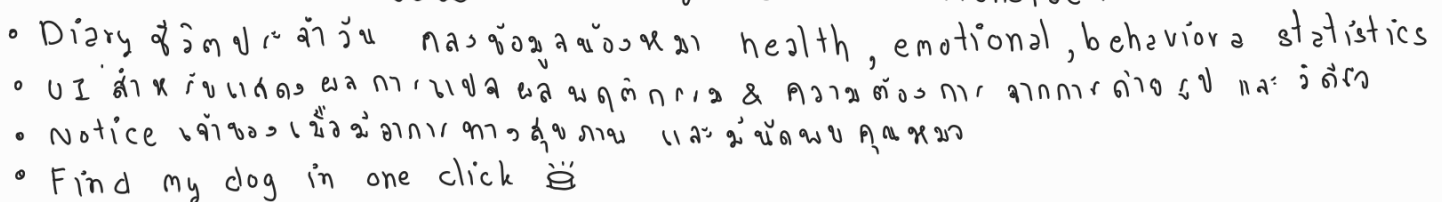 • Diary ชีวิตประจำวัน คลังข้อมูลน้องหมา health, emotional, behaviora statistics
• UI สำหรับแสดงผลการแปลผลพฤติกรรม & ความต้องการ จากการถ่ายรูป และ วิดีโอ
• Notice เจ้าของเมื่อมีอาการทางสุขภาพ และมีนัดพบคุณหมอ
• Find my dog in one click